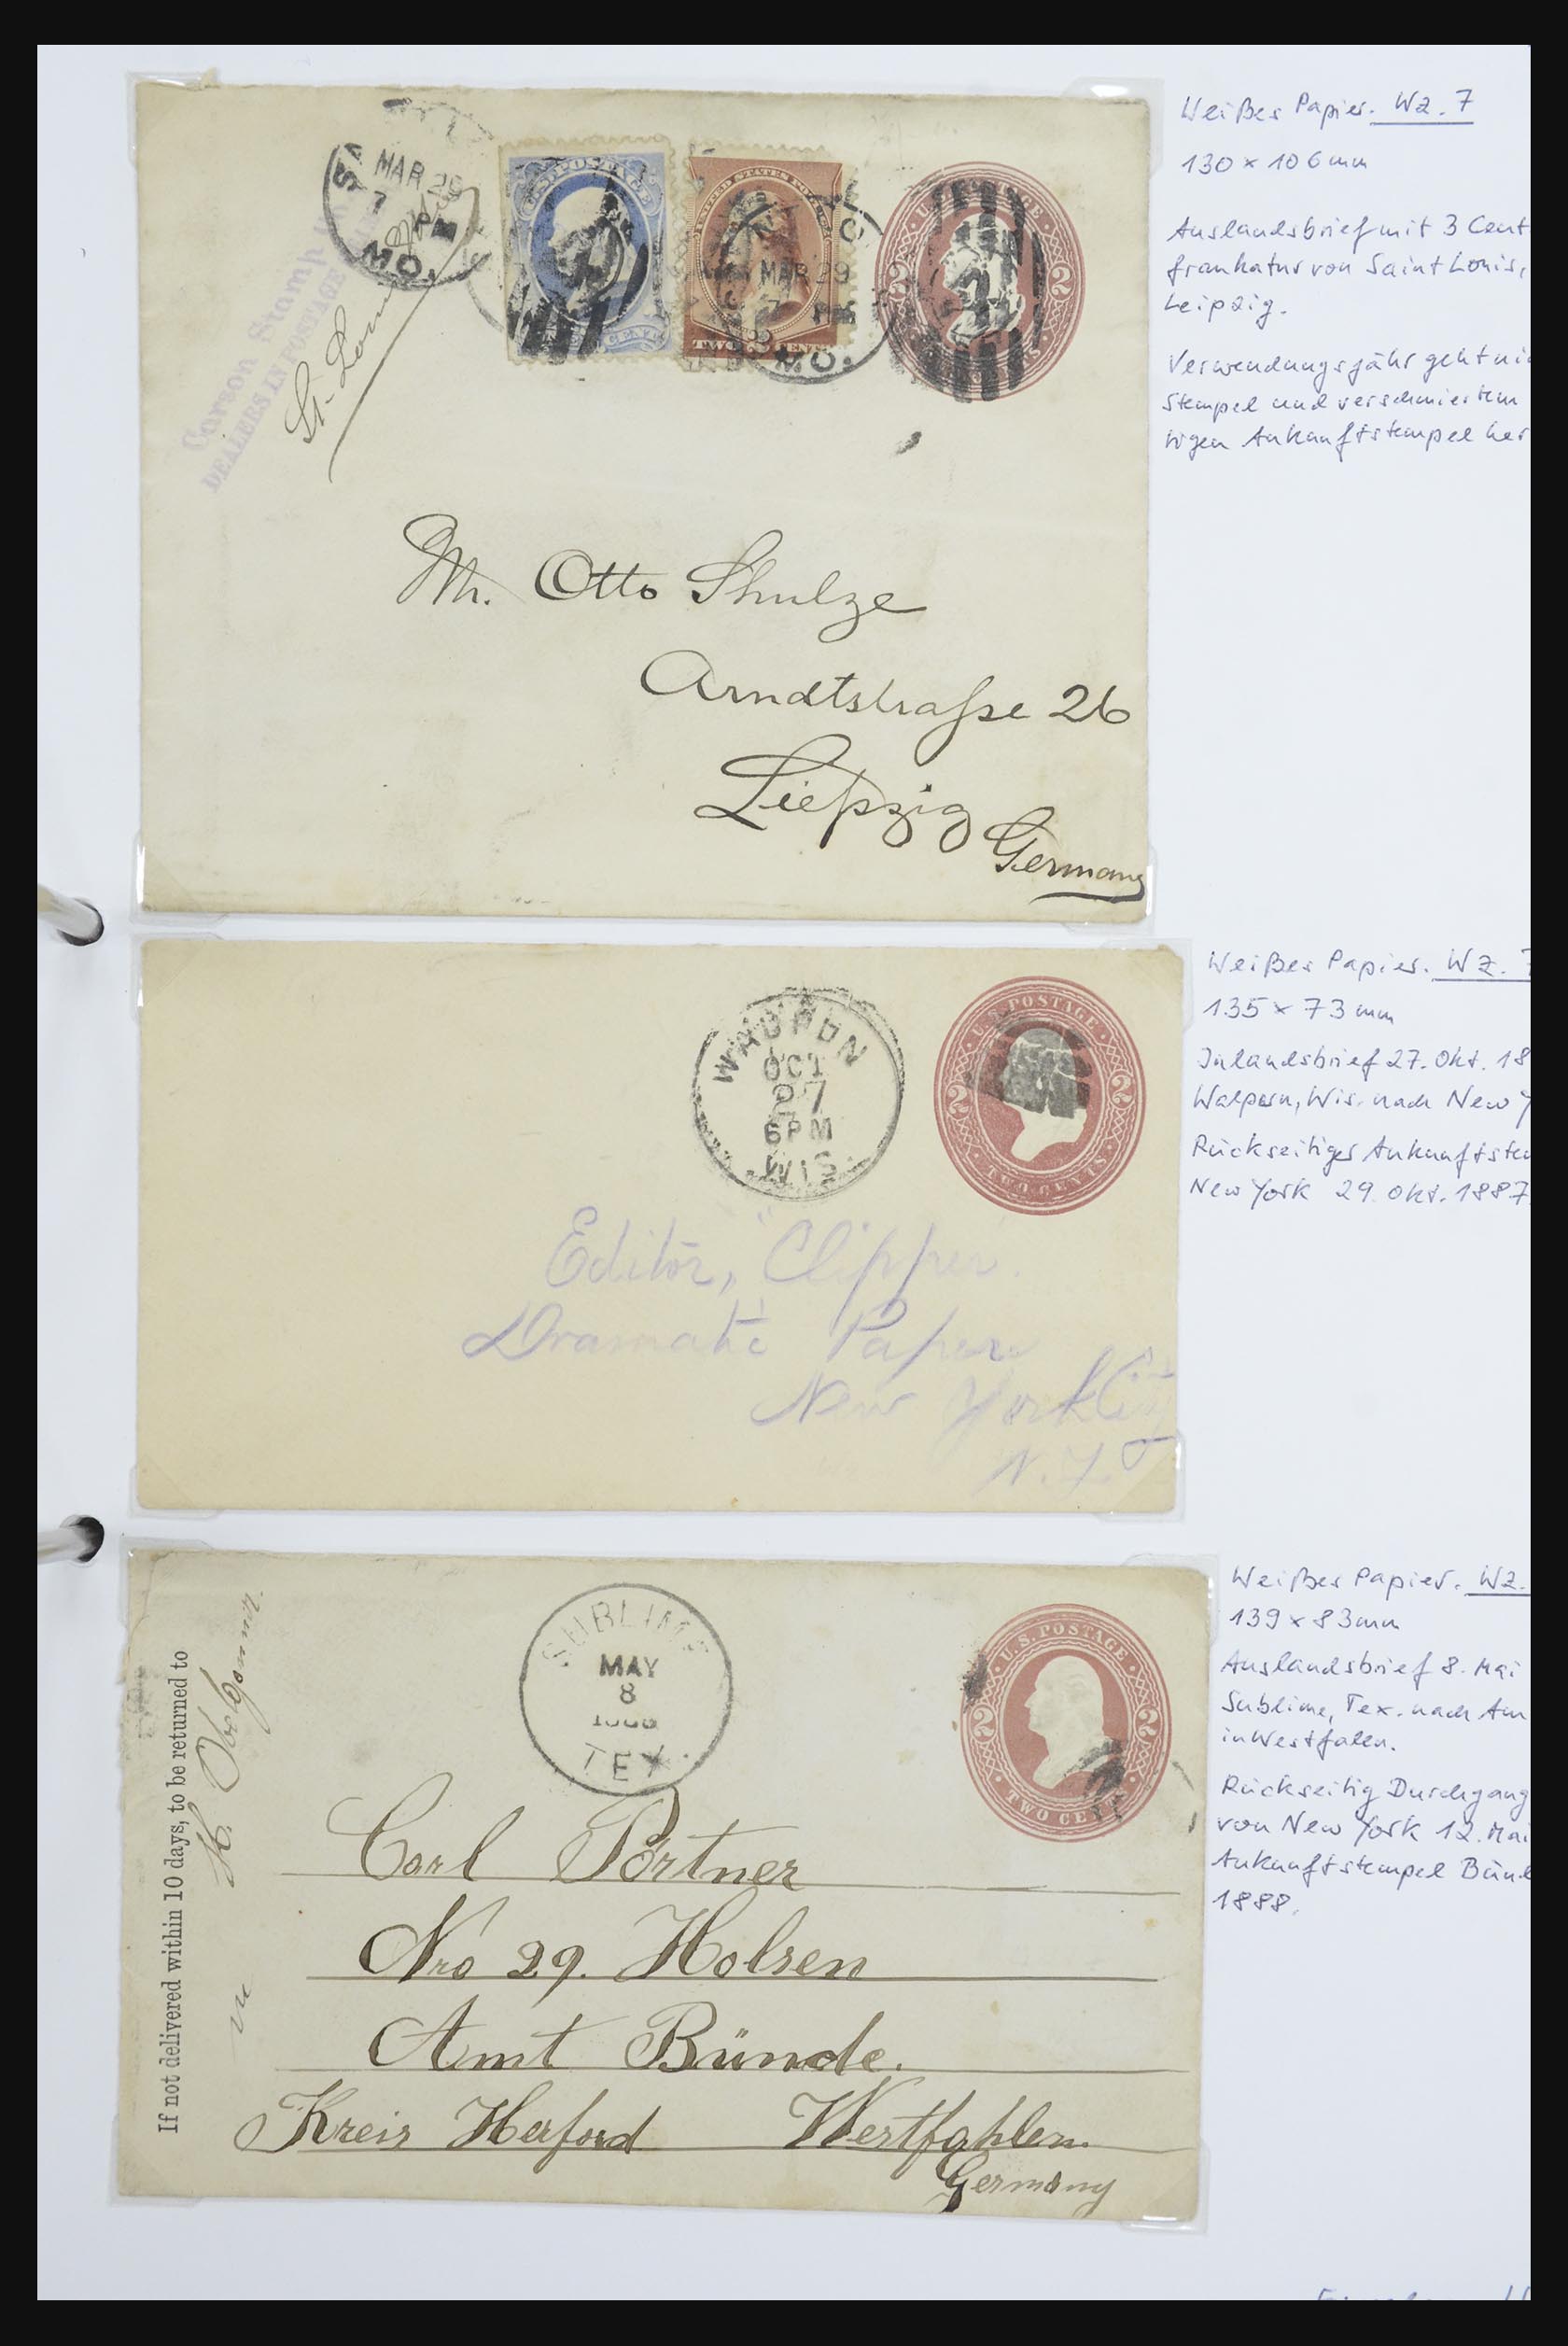 Weißes Papier. Wz. 7
130 x 106 mm
Auslandsbrief mit 3 Cent
frankatur von Saint Louis,
Leipzig.
Verwendungsjahr geht
Stempel und verschmiertem
Ankunftstempel her
MAR 29
7 PM
MO.
Carson Stamp
DEALERS IN POSTAGE
St. Louis
U.S. POSTAGE
CENT
UNITED STATES
TWO 2 CENTS
MAR 29
7 PM
MO.
U.S. POSTAGE
2 2
Mr. Otto Shulze
Arndtstraße 26
Liepzig
Germany
Weißes Papier. Wz. 7
135 x 73 mm
Inlandsbrief 27. Okt. 18
Wis. nach New Y
Rückseitiges Ankunftste
New York 29. Okt. 1887
WAUPUN
OCT
27
6 PM
WIS.
U.S. POSTAGE
2 2
TWO CENTS
Editor, "Clipper
Dramatic Paper
New York City
N.Y.
Weißes Papier. Wz.
139 x 83 mm
Auslandsbrief 8. Mai
Sublime, Tex. nach Am
in Westfalen.
Rückseitig Durchgang
von New York 12. Mai
Ankunftstempel Bünd
1888.
If not delivered within 10 days, to be returned to
SUBLIME
MAY
8
TEX.
U.S. POSTAGE
2 2
TWO CENTS
Carl Pörtner
Nro 29. Holsen
Amt Bünde.
Kreis Herford Westfahlen.
Germany